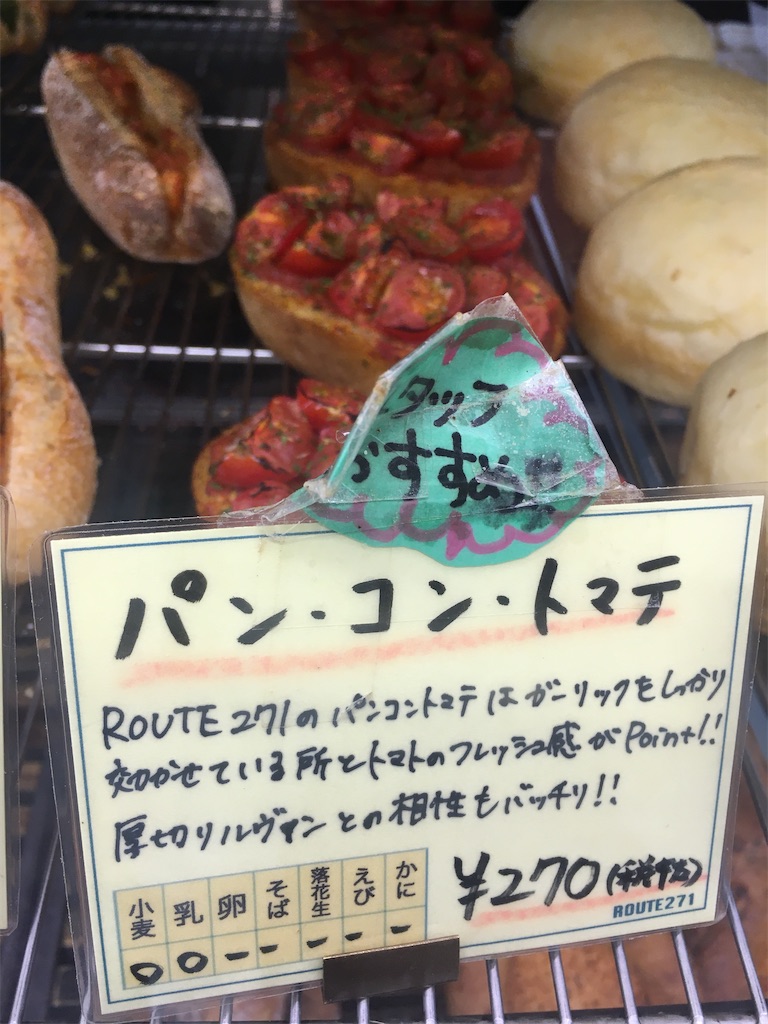 スタッフ
おすすめ!!
パン・コン・トマテ
ROUTE271のパンコントマテはガーリックをしっかり
効かせている所とトマトのフレッシュ感がPoint!!
厚切りルヴァンとの相性もバッチリ!!
小麦 乳 卵 そば 落花生 えび かに
○ ○ ー ー ー ー ー
¥270(税抜)
ROUTE271